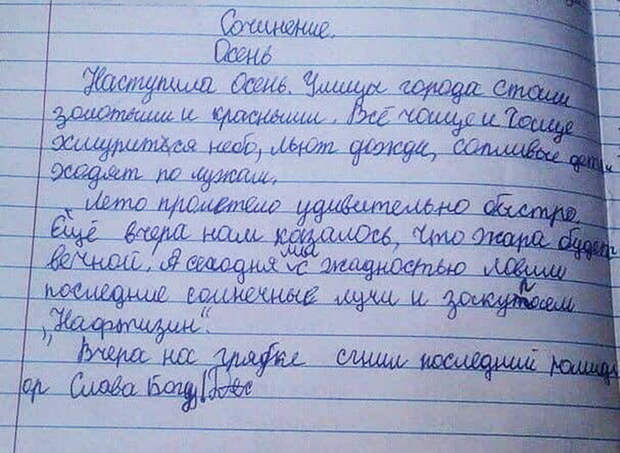 Сочинение.
Осень
Наступила Осень. Улицы города стали
золотыми и красными. Всё чаще и чаще
хмуриться небо, льют дожди, сопливые дети
ходят по лужам.
Лето пролетело удивительно быстро.
Ещё вчера нам казалось, что жара будет
вечной. А сегодня мы с жадностью ловим
последние солнечные лучи и закупаем
„Нафтизин".
Вчера на грядке сгнил последний помид
ор Слава Богу